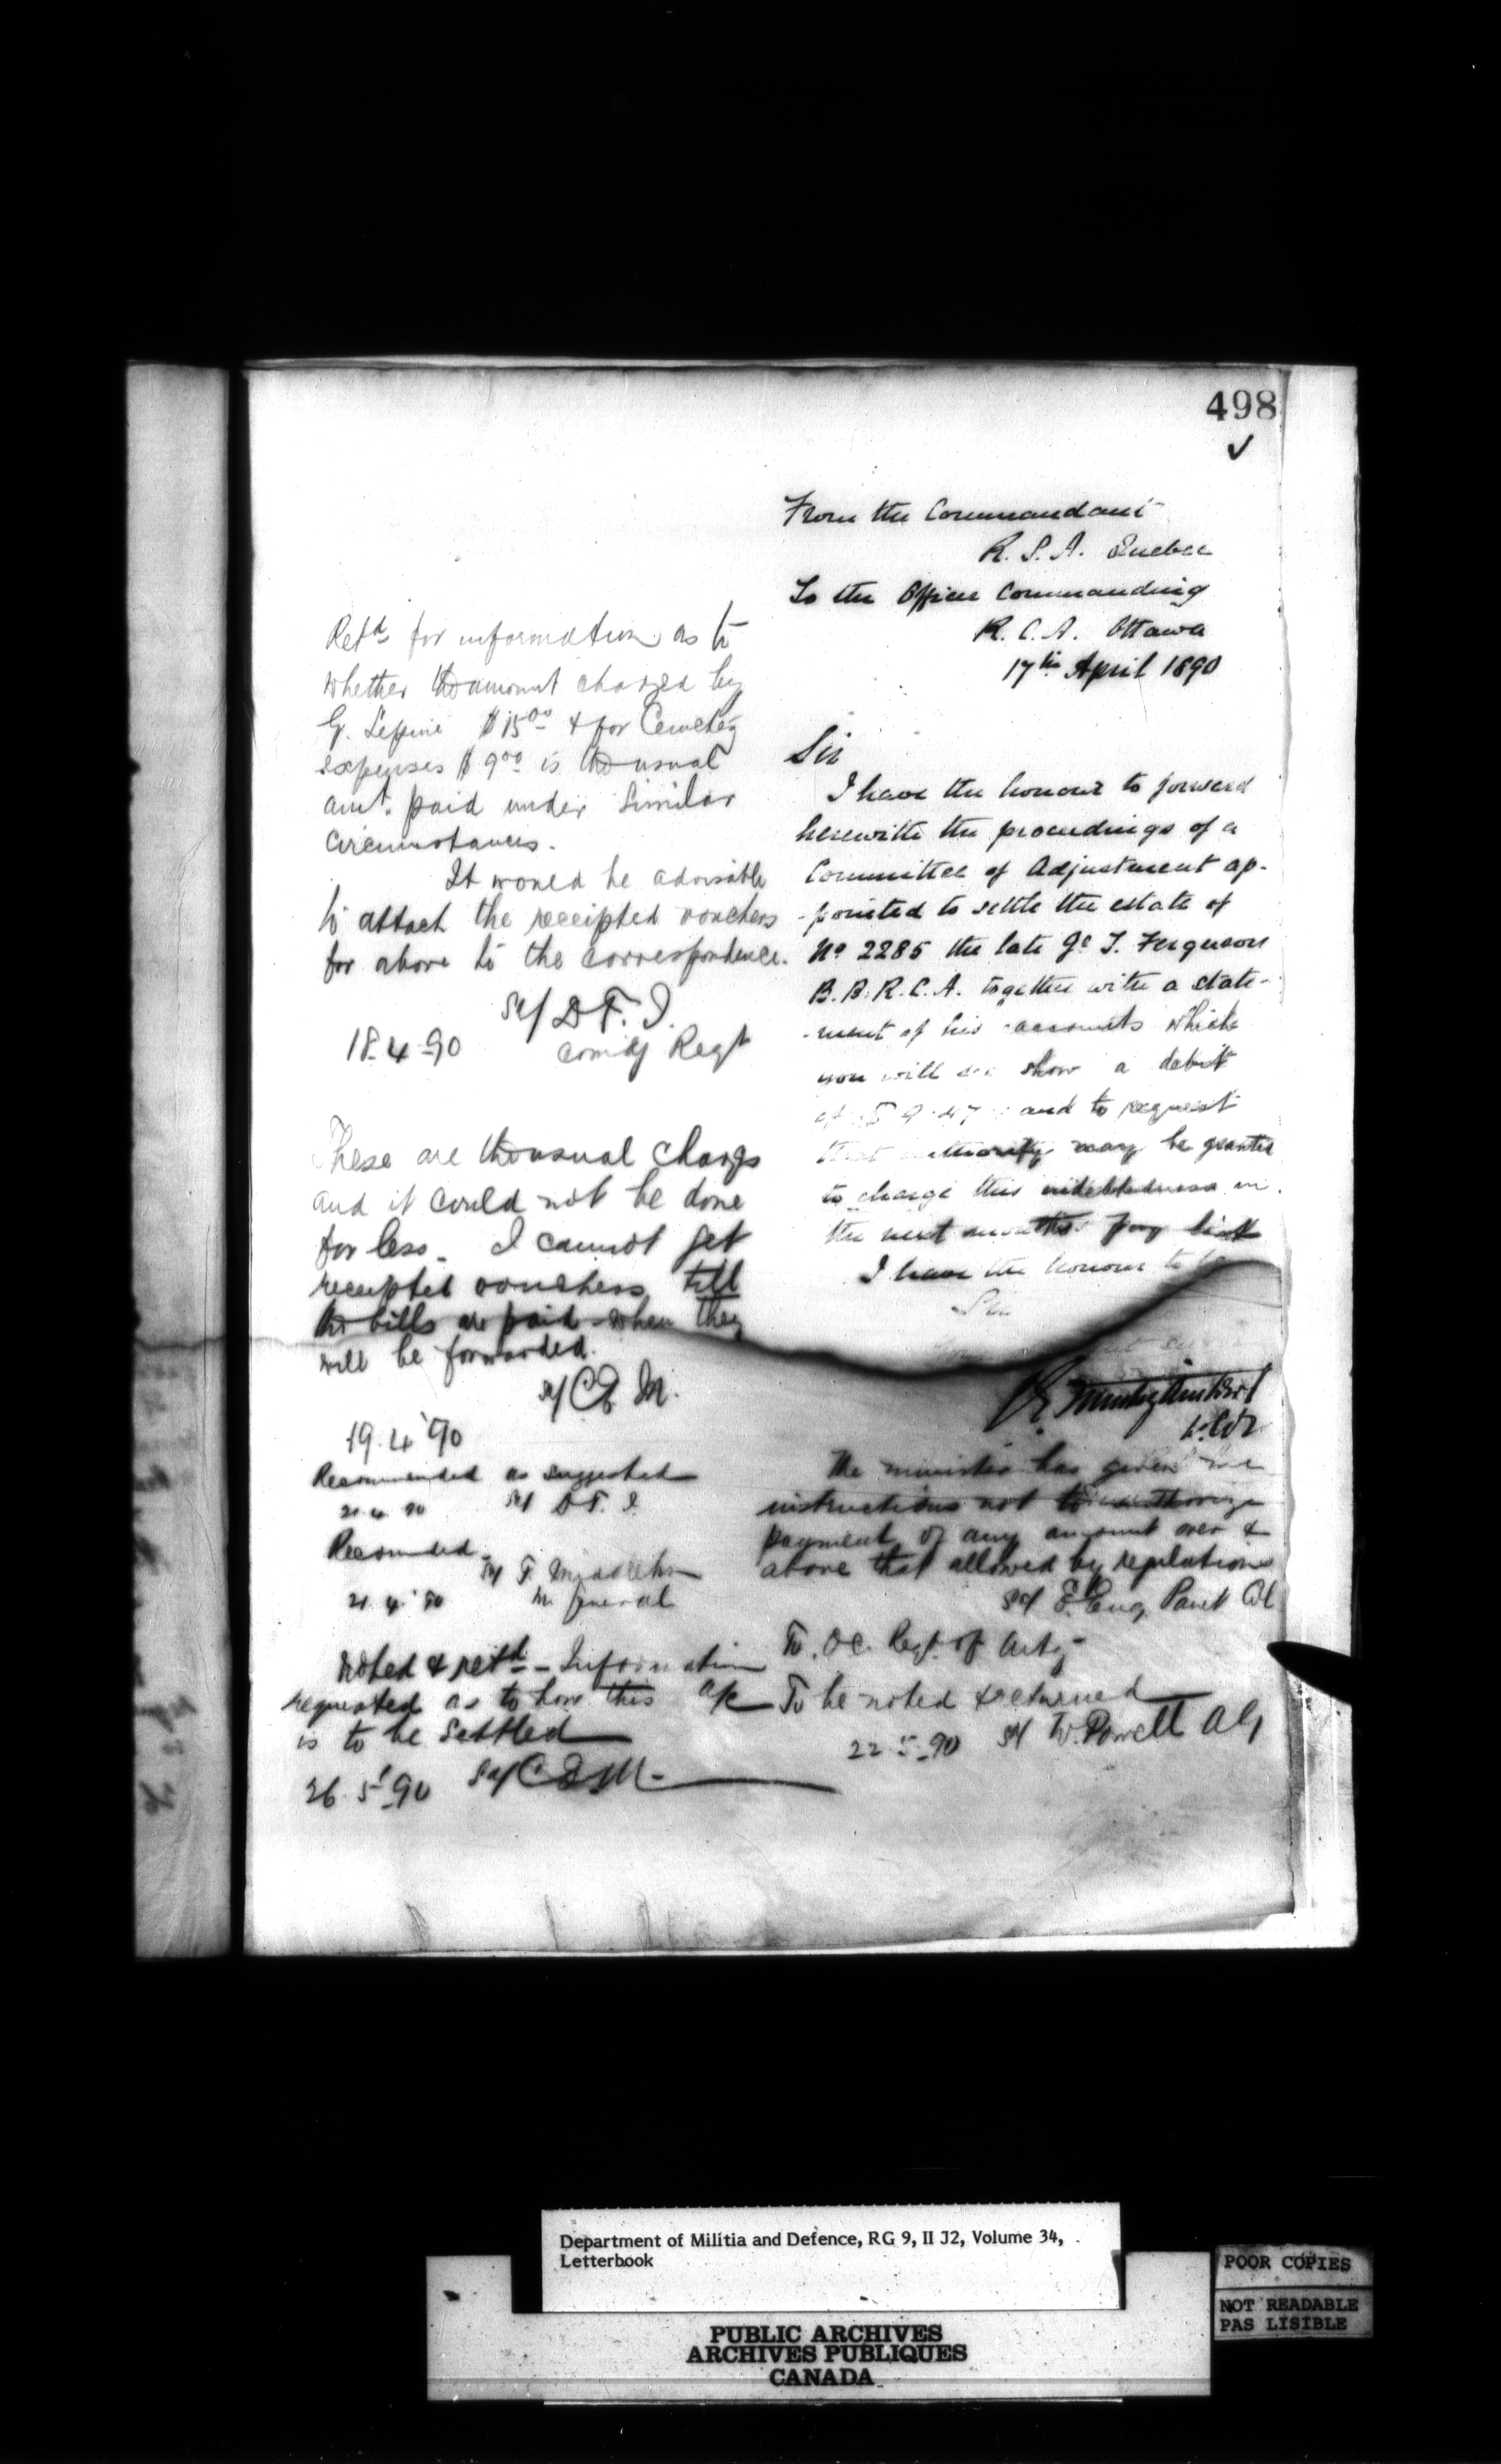 498
From the Commandant
R. S. A. Quebec
To the Officer Commanding
R. C. A. Ottawa
17th April 1890
Sir
I have the honour to forward
herewith the proceedings of a
Committee of Adjustment ap-
-pointed to settle the estate of
No 2285 the late Gr J. Ferguson
B. B. R. C. A. together with a state-
-ment of his accounts which
you will see show a debit
of $ 9.47 and to request
that authority may be granted
to charge this indebtedness in
the next months pay list
I have the honour to be
Sir
Lt. Col
The minister has given me
instructions not to authorize
payment of any amount over &
above that allowed by regulations
Sd/ E. Eug Panet Col
To. O.C. Regt. of Arty
To be noted & returned
22-5-90 Sd W. Powell AG
Retd for information as to
whether the amount charged by
G. Lepine $15.00 & for Cemetery
expenses $9.00 is the usual
amt. paid under similar
circumstances.
It would be advisable
to attach the receipted vouchers
for above to the correspondence.
Sd/ D T. I.
Comdg Regt
18-4-90
These are the usual charges
and it could not be done
for less. I cannot get
receipted vouchers till
the bills are paid - when they
will be forwarded.
Sd/ C E M.
19.4.90
Recommended as suggested
21.4.90 Sd D T. I.
Recomended
Sd F. Middleton
21.4.90 M. General
Noted & retd - Information
requested as to how this a/c
is to be settled
26.5.90 Sd/ C E M
Department of Militia and Defence, RG 9, II J2, Volume 34,
Letterbook
PUBLIC ARCHIVES
ARCHIVES PUBLIQUES
CANADA
POOR COPIES
NOT READABLE
PAS LISIBLE